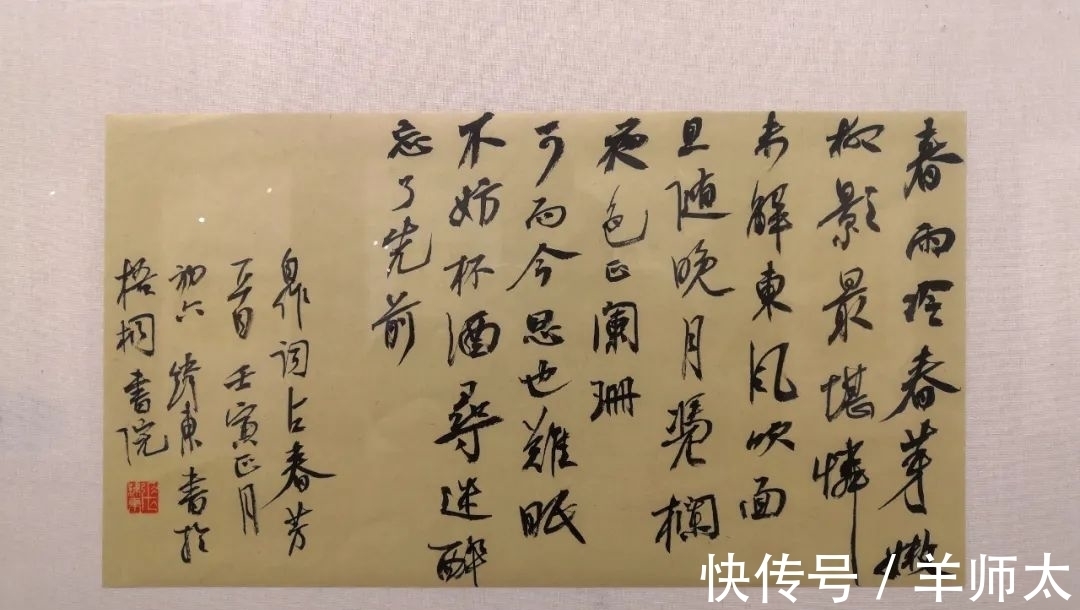 春雨吟春芽嫩
柳影最堪憐
未解東风吹面
且随晚月憑欄
夜色正闌珊
可而今思也難眠
不妨杯酒尋迷醉
忘了先前
皋作词占春芳
一首壬寅正月
初六 東書於
梧桐書院
快传号 / 羊师太